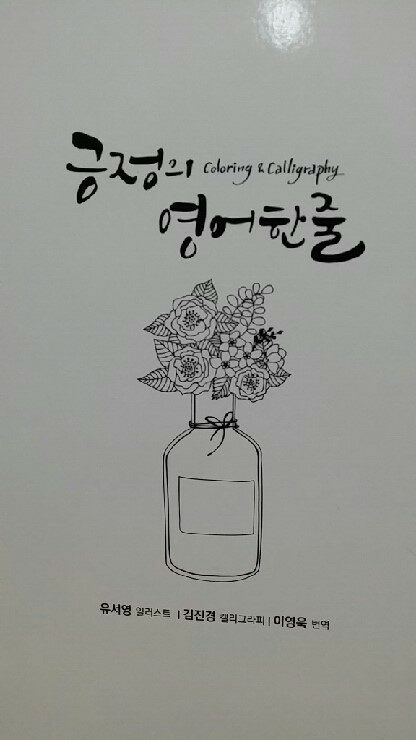 긍정의 Coloring & Calligraphy
영어한줄
유서영 일러스트 | 김진경 캘리그라피 | 이영욱 번역